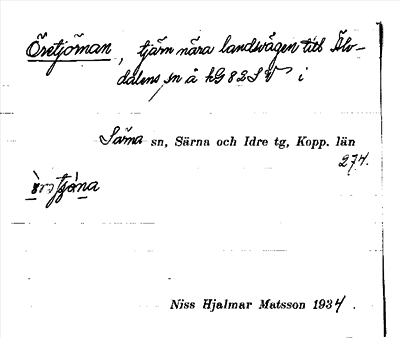 Öretjörnan, tjärn nära landsvägen till Älv-
dalens sn å kG 82 SV i
Särna sn, Särna och Idre tg, Kopp. län
274.
Niss Hjalmar Matsson 1934.